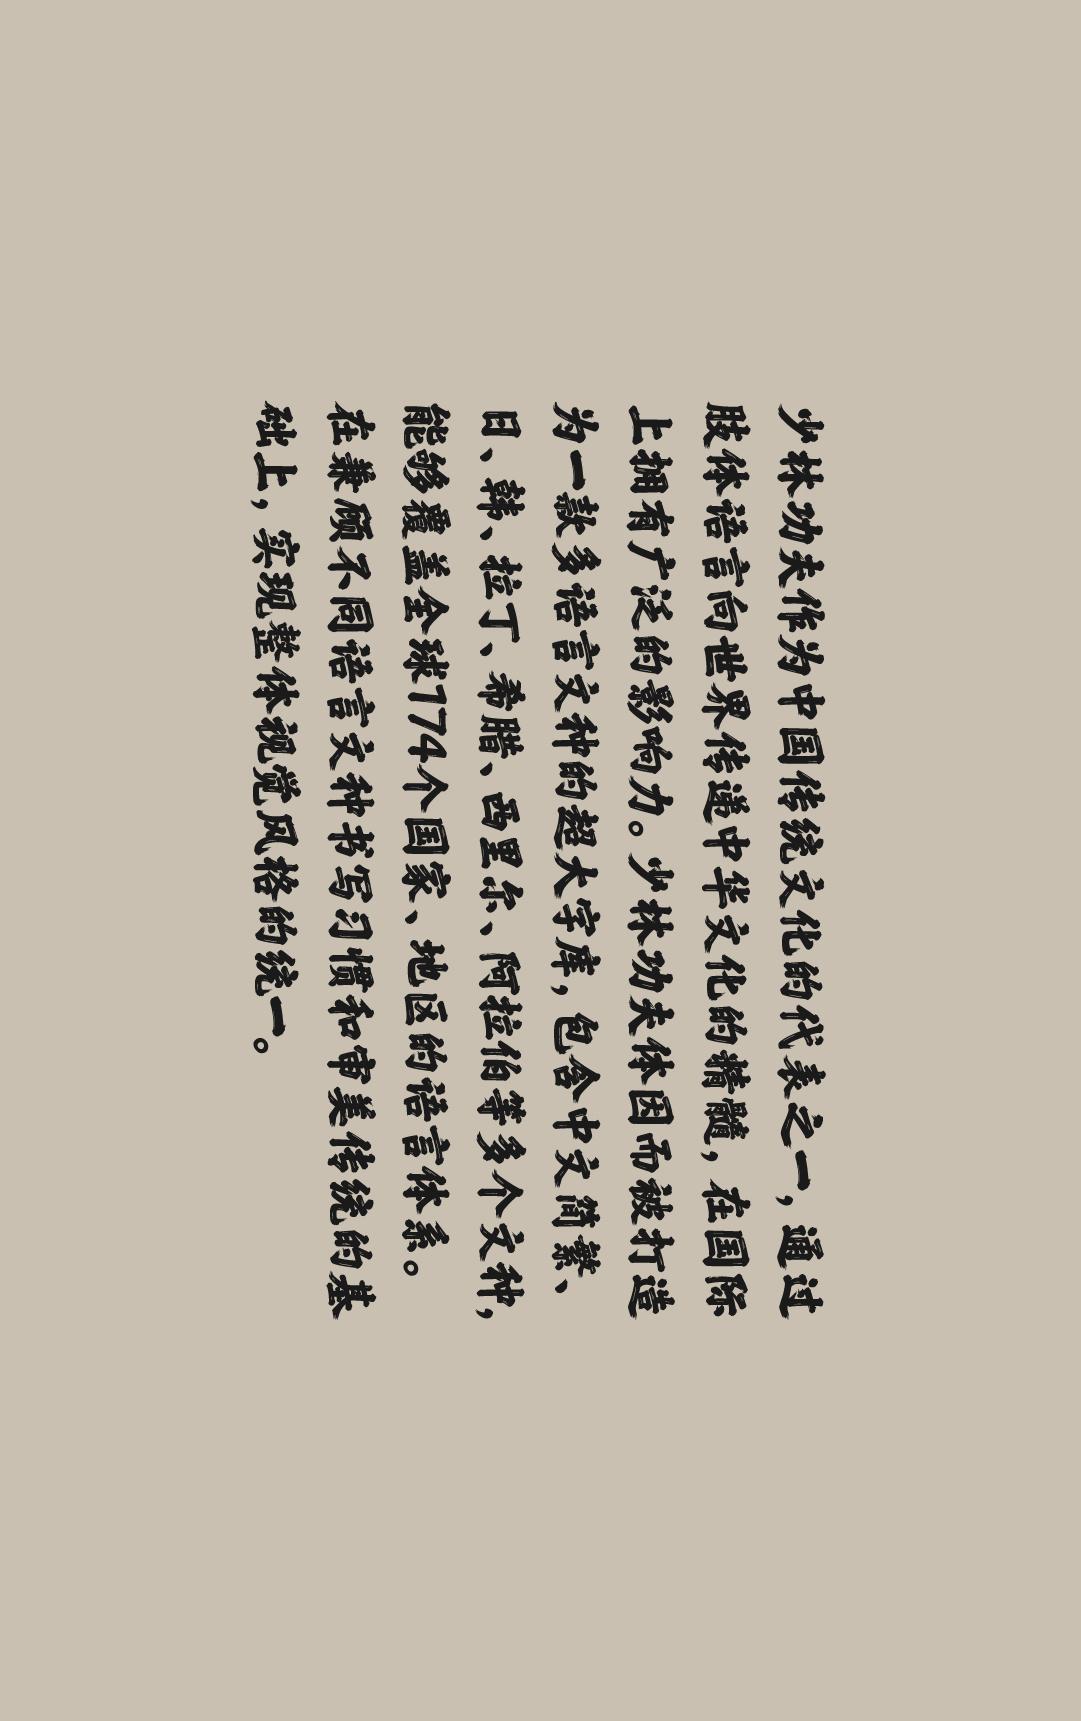 少林功夫作为中国传统文化的代表之一，通过
肢体语言向世界传递中华文化的精髓，在国际
上拥有广泛的影响力。少林功夫体因而被打造
为一款多语言文种的超大字库，包含中文简繁、
日、韩、拉丁、希腊、西里尔、阿拉伯等多个文种，
能够覆盖全球174个国家、地区的语言体系。
在兼顾不同语言文种书写习惯和审美传统的基
础上，实现整体视觉风格的统一。